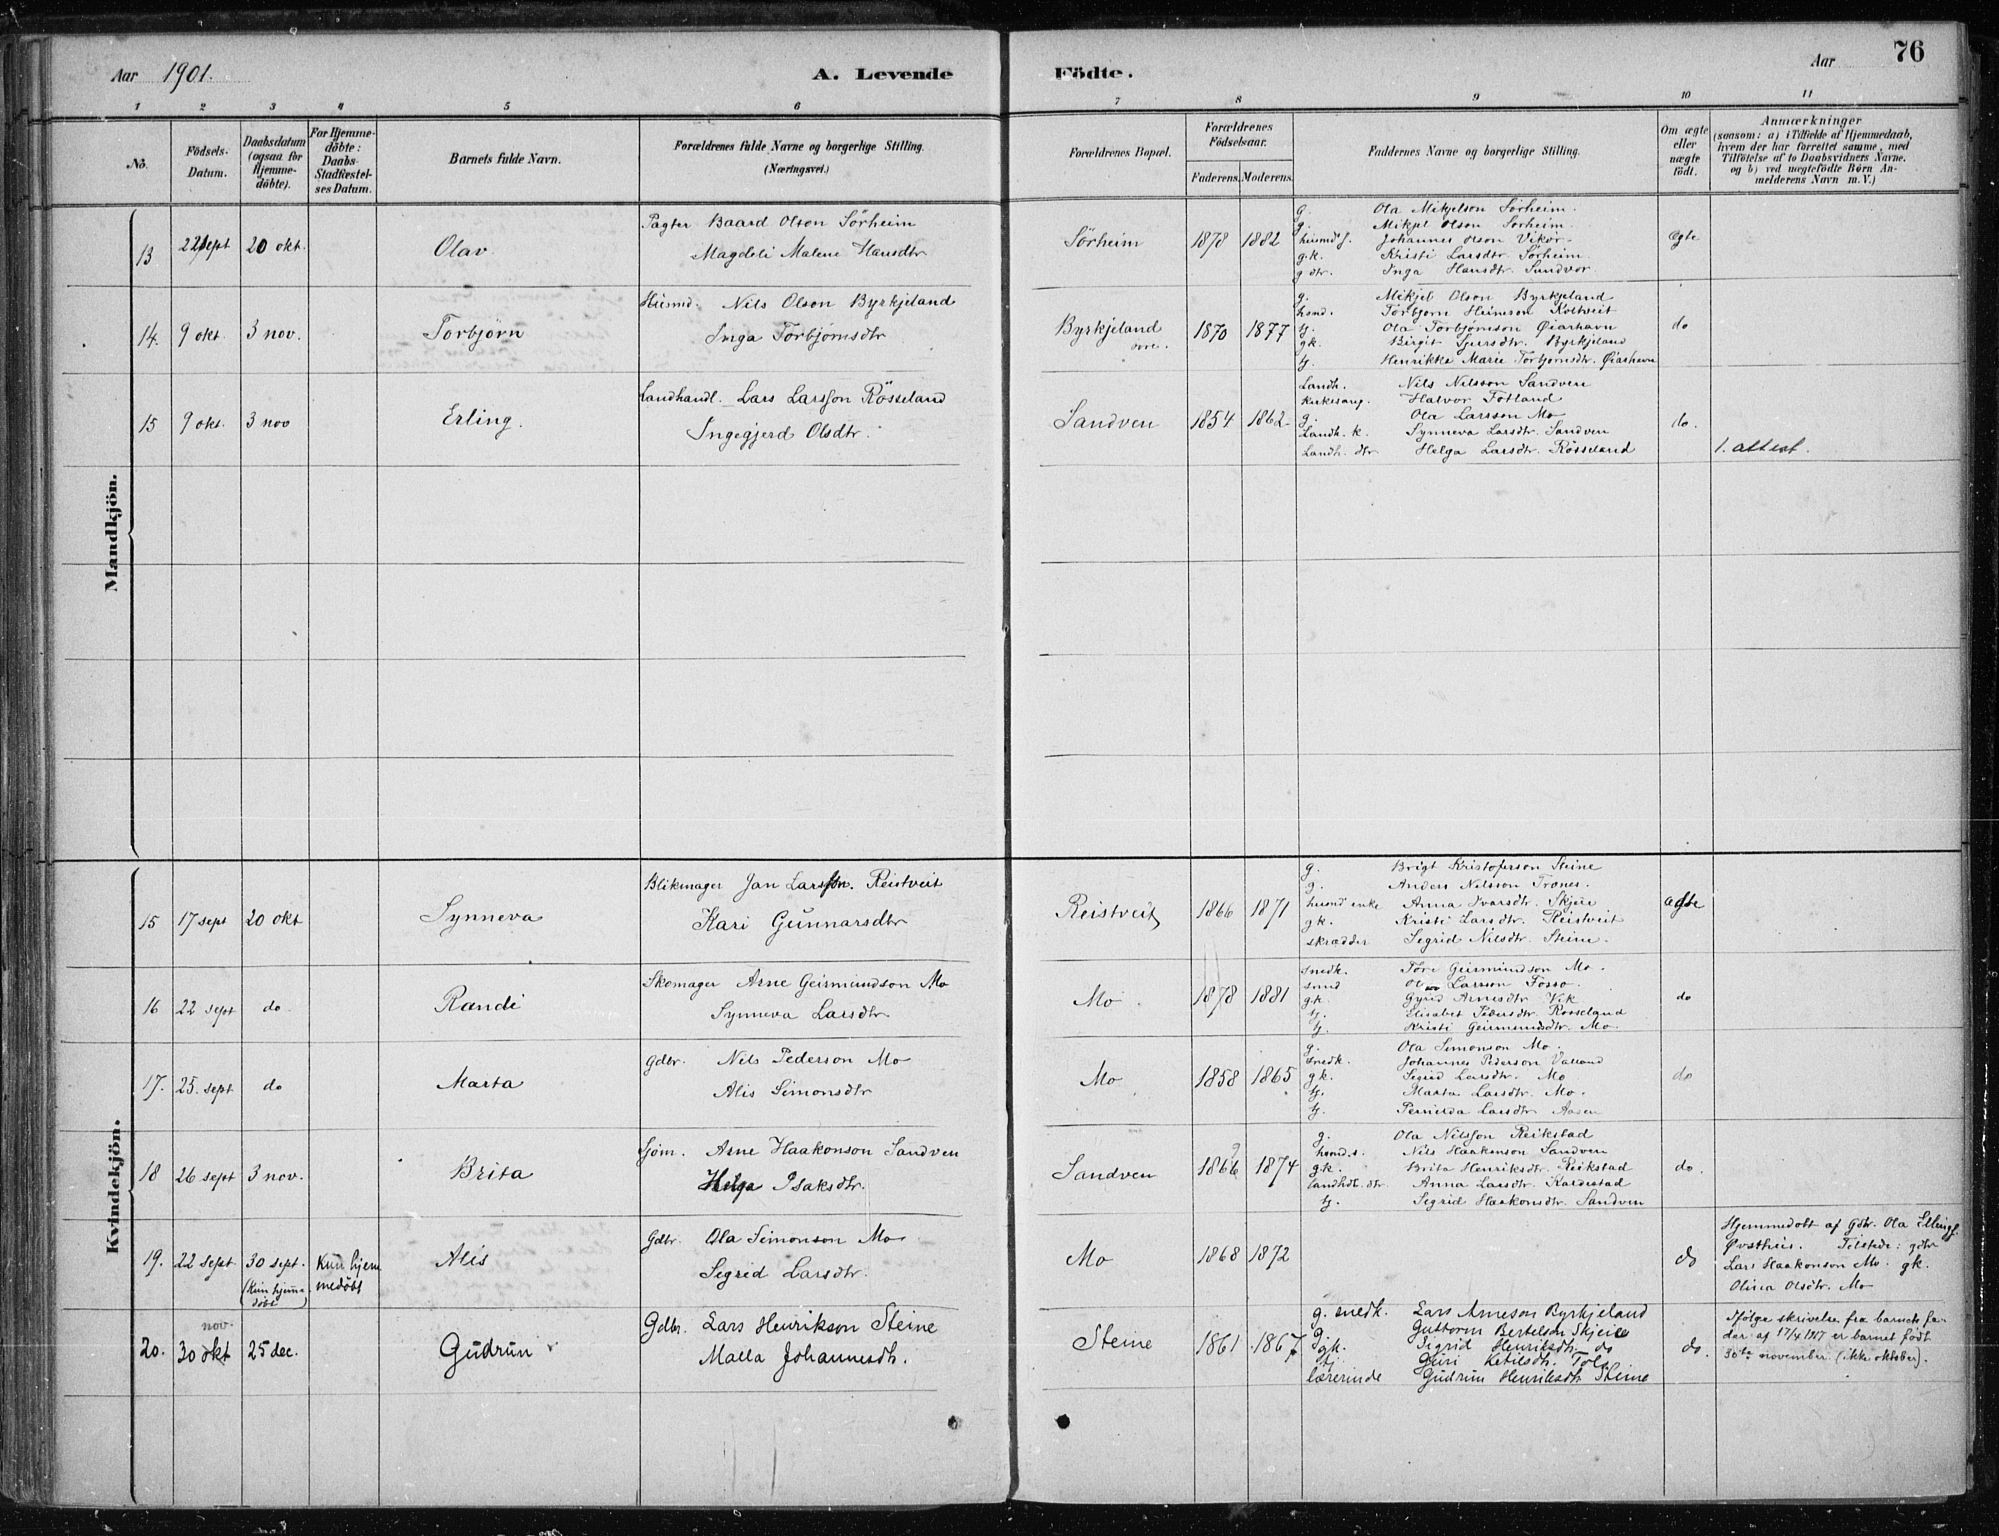 76
Aar 1901.
A. Levende
Födte.
Aar
1 2 3 4 5 6 7 8 9 10 11
No.
Födsels-
Datum.
Daabsdatum
(ogsaa for
Hjemme-
döbte).
For Hjemme-
döbte:
Daabs-
Stadfæstel-
ses Datum.
Barnets fulde Navn.
Forældrenes fulde Navne og borgerlige Stilling.
(Næringsvei.)
Forældrenes Bopæl.
Forældrenes
Födselsaar.
Faderens. Moderens.
Faddernes Navne og borgerlige Stilling.
Om ægte
eller
uægte
födt.
Anmærkninger
(saasom: a) i Tilfælde af Hjemmedaab,
hvem der har forrettet samme, med
Tilföielse af to Daabsvidners Navne.
og b) ved uægtefödte Börn An-
melderens Navn m. V.)
Mandkjön.
13 22 sept 20 okt. Olav
Pagter Baard Olson Sørheim
Magdeli Malene Hansdtr
Sörheim 1878 1882
g. Ola Mikjelson Sørheim.
g. Mikjel Olson Sørheim
husmd f. Johannes Olson Vikør
g.k. Kristi Larsdtr. Sørheim
g dtr. Inga Hansdtr. Sandvor
ægte
14. 9 okt. 3 nov. Torbjørn
Husmd. Nils Olson Byrkjeland
Inga Torbjørnsdtr
Byrkjeland
øvre. 1870 1877
g. Mikjel Olson Byrkjeland
husd. Torbjørn Heimson Koltveit
tj. Ola Torbjørnson Øiarhavn
gk. Birgit Sjursdtr. Byrkjeland
tj. Henrikke Marie Torbjørnsdtr. Øiarhavn
do
15 9 okt. 3 nov Erling.
Landhandl. Lars Larsson Rösseland
Ingegjerd Olsdtr.
Sandven 1854 1862
Landh. Nils Nilsson Sandven
Kirkesang. Halvor Fotland
g. Ola Larsson Mo
Landh. k. Synneva Larsdtr. Sandven
Landh. dtr Helga Larsdtr. Rösseland
do. 1. attest.
Kvindekjön.
15 17 sept 20 okt Synneva
Blikmager Jan Larsson. Reistveit
Kari Gunnarsdtr
Reistveit 1866 1871
g. Brigt Kristoferson Steine
g. Anders Nilsson Trones.
husmd enke Anna Ivarsdtr. Skjeie
gk. Kristi Larsdtr. Reistveit
skrædder Segrid Nilsdtr. Steine.
ægte
16 22 sept do. Randi
Skomager Arne Geirmundson Mo
Synneva Larsdtr
Mo. 1878 1881
snedk. Tore Geirmundson Mo.
smed Larsson Fosso.
gk. Gyrid Arnesdtr Vik
tj. Elisabet Pedersdtr. Rosseland
tj. Kristi Geirmundsdtr. Mo.
do
17. 25. sept do Marta
Gdbr. Nils Pederson Mo
Alis Simonsdtr
Mo 1858 1865
g. Ola Simonson Mo.
snedk. Johannes Pederson Valland
gk. Segrid Larsdtr. Mo
tj. Marta Larsdtr. Mo.
tj. Pernilda Larsdtr Aasen
do
18 26 sept 3 nov. Brita
Sjøm. Arne Haakonson Sandven
Helga Isaksdtr.
Sandven 1866 1874
g. Ola Nilsson Reikstad
husmd. s. Nils Haakonson Sandven
gk. Brita Henriksdtr. Reikstad
landhdl. dtr Anna Larsdtr. Kaldestad
tj. Segrid Haakonsdtr. Sandven
do.
19. 22 sept 30 sept.
(Kun hjemme
döbt) Kun hjem
medöbt Alis
Gdbr. Ola Simonson Mo
Segrid Larsdtr.
Mo 1868 1872
do
Hjemmedøbt af gdbr. Ola Ellings.
Øvsthus. Tilstede: gdbr
Lars Haakonson Mo. gk.
Olina Olsdtr. Mo
20. nov.
30 okt 25 dec. Gudrun
Gdbr. Lars Henrikson Steine
Malla Johannesdtr.
Steine 1861 1867
g. snedk. Lars Arneson Byrkjeland
g. Guttorm Bertelson Skjeie
gk. Sigrid Henriksdtr do
tj. Guri Ketilsdtr. Tolo
lærerinde Gudrun Henriksdtr Steine
do.
Ifølge skrivelse fra barnets fa-
der af 17/4 1917 er barnet født
30te november (ikke oktober).